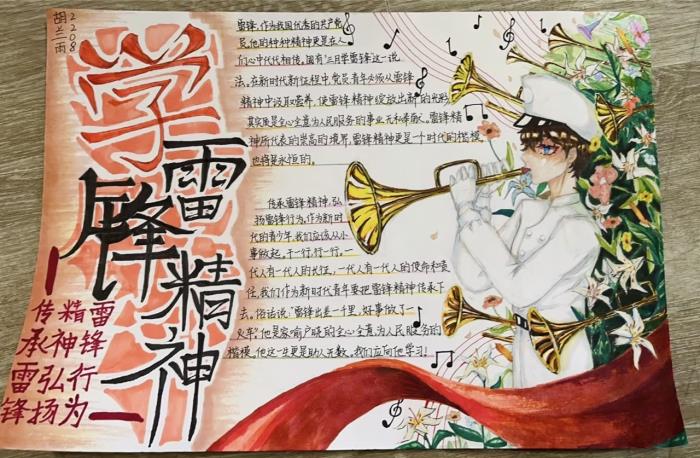 2208
胡兰雨
学雷锋精神
雷锋,作为我国优秀的共产党
员,他的种种精神更是在人
们心中代代相传。固有"三月学雷锋"这一说
法。在新时代新征程中党员青年必须从雷锋
精神中汲取营养,使雷锋精神绽放出新的光彩
其实质是全心全意为人民服务的事业无私奉献人。雷锋精
神所代表的崇高的境界,雷锋精神更是一个时代的楷模
也将是永恒的。
传承雷锋精神,弘
扬雷锋行为,作为新时
代的青少年,我们应该从小
事做起。干一行,行一行。一
代人有一代人的长征,一代人有一代人的使命和责
任,我们作为新时代青年要把雷锋精神传承下
去,俗话说:"雷锋出差一千里,好事做了一
火车"他是家喻户晓的全心全意为人民服务的
楷模。他这一生更是助人无数。我们应向他学习!
传承雷锋
精神弘扬
雷锋行为